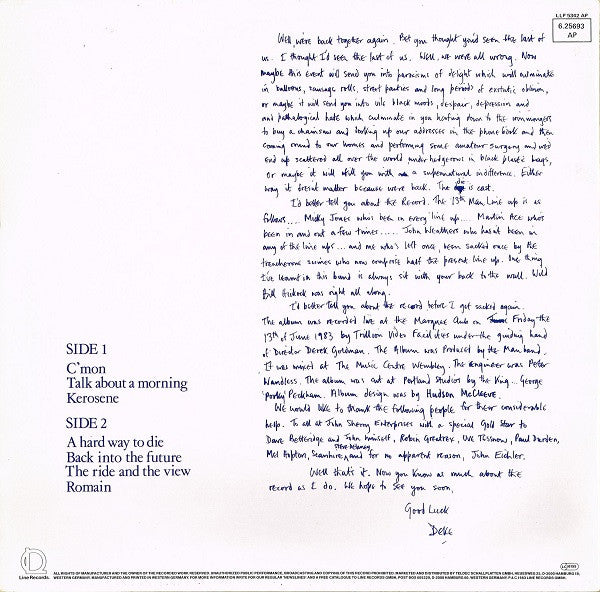 LLP 5302 AP
6.25693
AP
Well, we're back together again. Bet you thought you'd seen the last of
us. I thought I'd seen the last of us. Well, we were all wrong. Now
maybe this event will send you into paroxisms of delight which will culminate
in balloons, sausage rolls, street parties and long periods of exstatic oblivion,
or maybe it will send you into vile black moods, despair, depression and
and pathalogical hate which culminate in you hoofing down to the ironmongers
to buy a chainsaw and looking up our addresses in the phone book and then
coming round to our homes and performing some amateur surgery and we'd
end up scattered all over the world under hedgerows in black plastic bags,
or maybe it will fill you with a supernatural indifference. Either
way it dresnt matter because were back. The die is cast.
I'd better tell you about the Record. The 13th Man Line up is as
follows.... Micky Jones who's been in every line up.... Martin Ace who's
been in and out a few times..... John Weathers who hasnt been in
any of the line ups... and me who's left once, been sacked once by the
treacherous swines who now compose half the present line up. One thing
I've learnt in this band is always sit with your back to the wall. Wild
Bill Hickock was right all along.
I'd better tell you about the record before I get sacked again.
The album was recorded live at the Marquee Club on Friday the
13th of June 1983 by Trillion Video Facilities under the guiding hand
of Director Derek Goodman. The Album was Produced by the Man band.
It was mixed at The Music Centre Wembley. The engineer was Peter
Wandless. The album was cut at Portland Studios by the King... George
'Porky' Peckham. Album design was by Hudson McCleeve.
We would like to thank the following people for their considerable
help. To all at John Sherry Enterprises with a special Gold Star to
Dave Betteridge and John himself, Robin Greatrex, Uve Tessnow, Paul Durden,
Mel Hopton, and for no apparent reason, John Eichler.
Well that's it. Now you know as much about the
record as I do. We hope to see you soon.
Good Luck
Deke
SIDE 1
C'mon
Talk about a morning
Kerosene
SIDE 2
A hard way to die
Back into the future
The ride and the view
Romain
Line Records
ALL RIGHTS OF MANUFACTURER AND THE OWNER OF THE RECORDED WORK RESERVED. UNAUTHORIZED PUBLIC PERFORMANCE, BROADCASTING AND COPYING OF THIS RECORD PROHIBITED. MARKETED AND DISTRIBUTED BY TELDEC SCHALLPLATTEN GMBH, HEUSSWEG 25, D-2000 HAMBURG 19,
WESTERN GERMANY. MANUFACTURED AND PRINTED IN WESTERN GERMANY. FOR MORE INFORMATION WRITE FOR OUR REGULAR 'NEWSLINES' AND A FREE CATALOGUE TO LINE RECORDS GMBH, POST BOX 605220, D-2000 HAMBURG 60, WESTERN GERMANY.